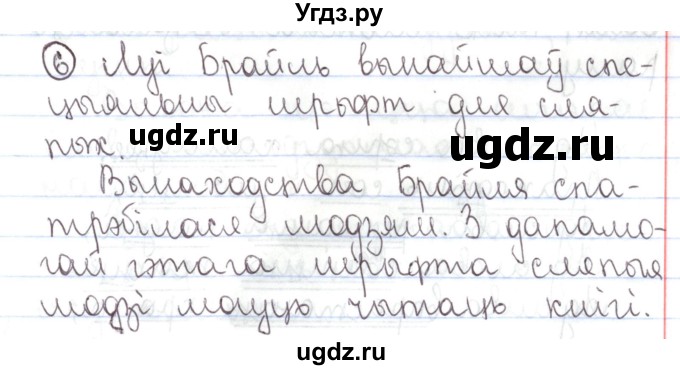 Угдз.ру
⑥ Луі Брайль вынайшаў спе-
цыяльны шрыфт для сля-
пых.
ugdz.ru ugdz.ru
Вынаходства Брайля спа-
трэбілася людзям. З дапамо-
гай гэтага шрыфта сляпыя
людзі могуць чытаць кнігі.
ugdz.ru